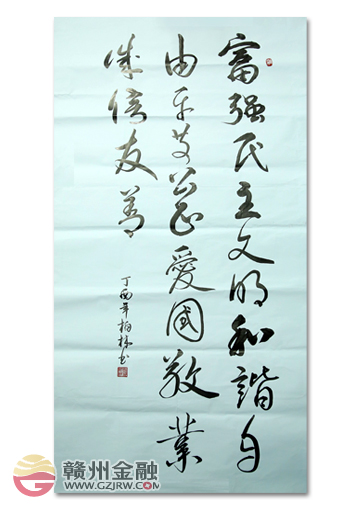 富强民主文明和諧自
由平等公正愛國敬業
诚信友善
丁酉年柏林书
赣州金融
WWW.GZJRW.COM